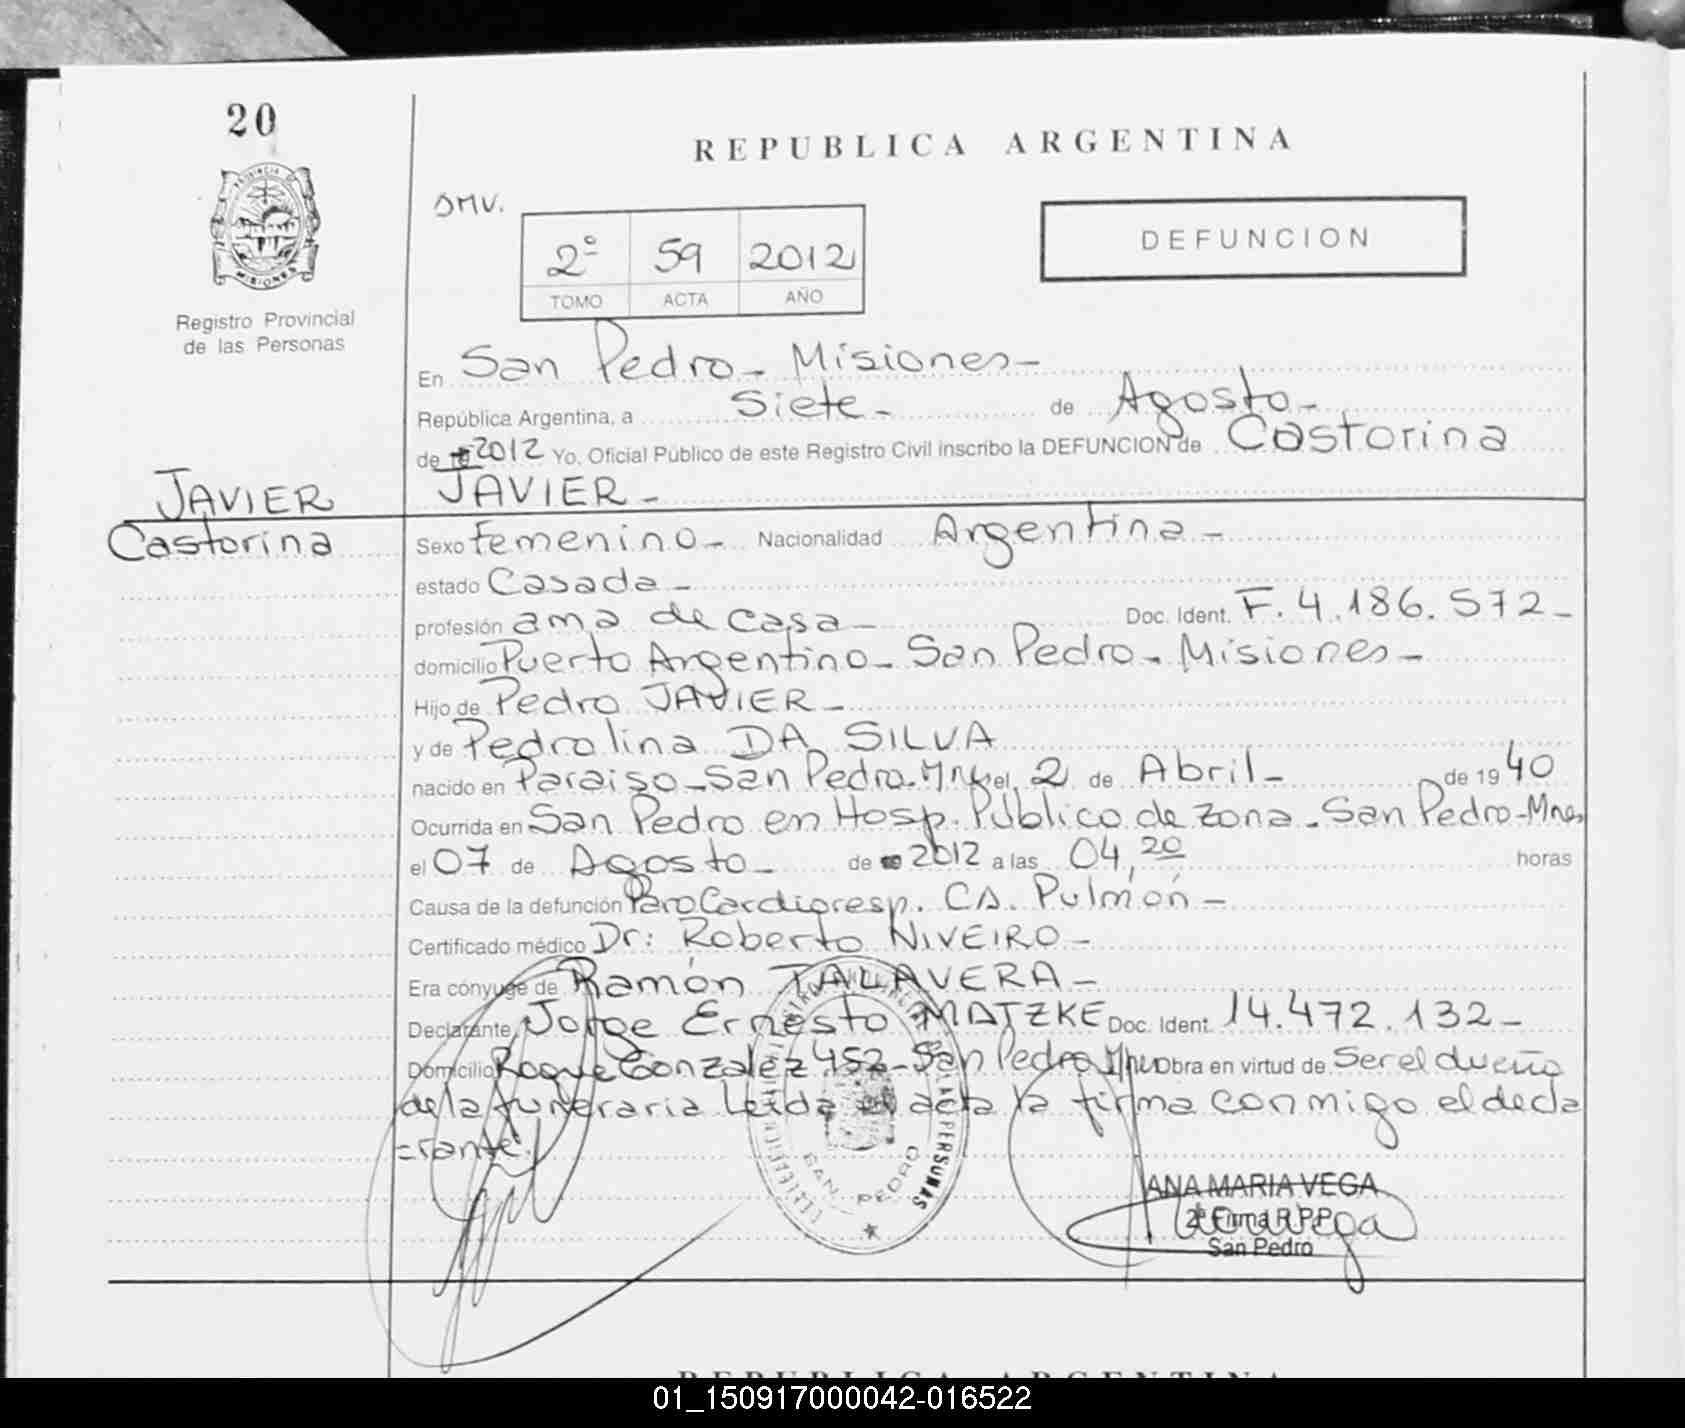 20
REPUBLICA ARGENTINA
PROVINCIA DE
MISIONES
Registro Provincial
de las Personas
SMV.
2º 59 2012
TOMO ACTA AÑO
DEFUNCION
En San Pedro - Misiones -
República Argentina, a Siete - de Agosto -
de 2012 Yo. Oficial Público de este Registro Civil inscribo la DEFUNCION de Castorina
JAVIER -
JAVIER
Castorina
Sexo femenino - Nacionalidad Argentina -
estado Casada -
profesión ama de casa - Doc. Ident. F. 4.186.572 -
domicilio Puerto Argentino - San Pedro - Misiones -
Hijo de Pedro JAVIER -
y de Pedrolina DA SILVA
nacido en Paraiso - San Pedro - Mnes el 2 de Abril - de 19 40
Ocurrida en San Pedro en Hosp. Público de Zona - San Pedro - Mnes
el 07 de Agosto - de 2012 a las 04,20 horas
Causa de la defunción Paro Cardioresp. CA. Pulmón -
Certificado médico Dr: Roberto NIVEIRO -
Era cónyuge de Ramón TALAVERA -
Declarante Jorge Ernesto MATZKE Doc. Ident. 14.472.132 -
Domicilio Roque Gonzalez 452 - San Pedro Mnes Obra en virtud de Ser el dueño
de la funeraria Leida el acta la firma conmigo el decla
=rante.
PERSONAS
SAN PEDRO
ANA MARIA VEGA
2ª Firma R.P.P.
San Pedro
REPUBLICA ARGENTINA
01_150917000042-016522